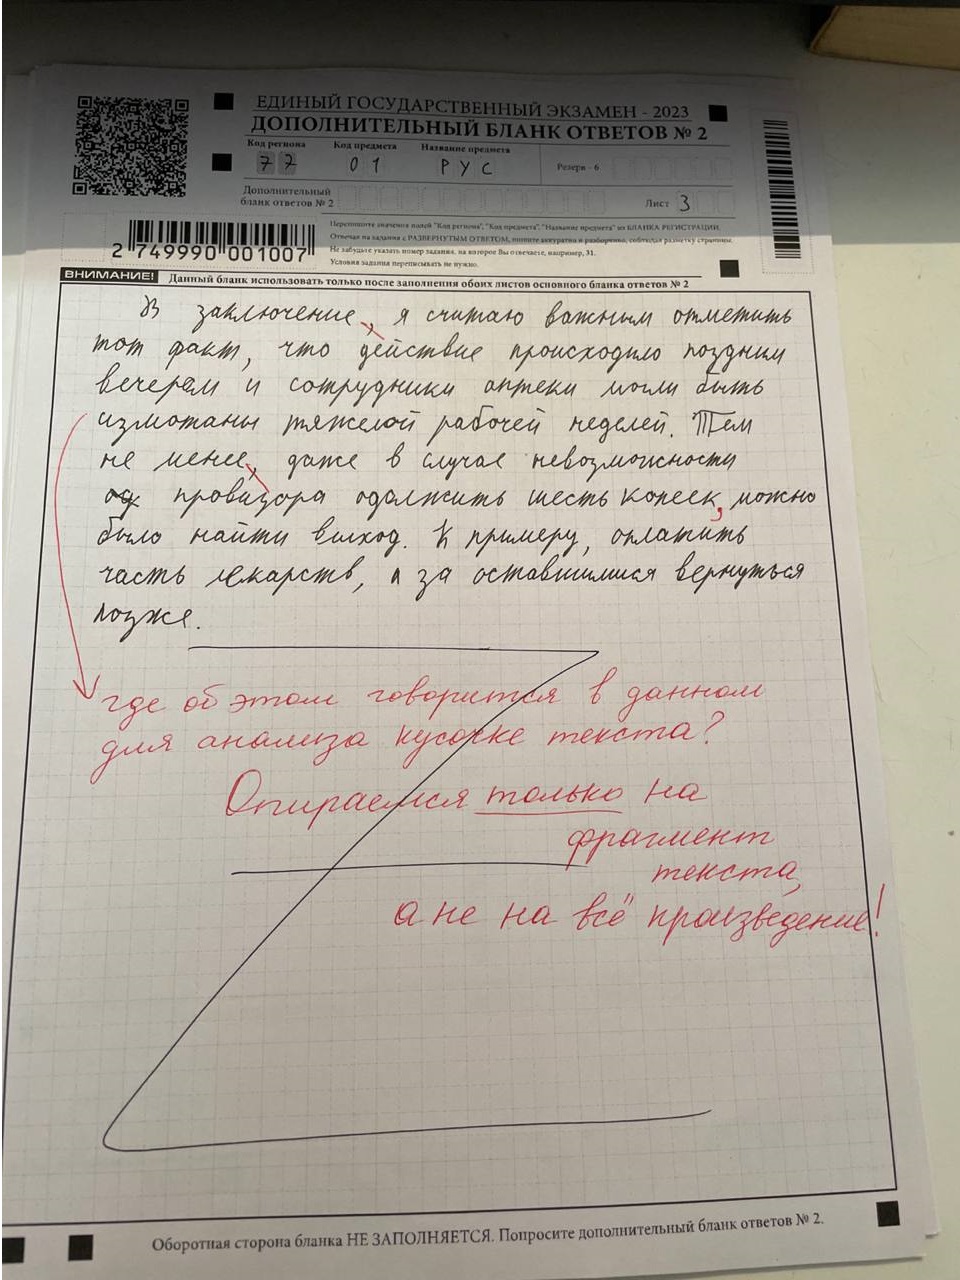 ЕДИНЫЙ ГОСУДАРСТВЕННЫЙ ЭКЗАМЕН - 2023
ДОПОЛНИТЕЛЬНЫЙ БЛАНК ОТВЕТОВ № 2
Код региона Код предмета Название предмета
77 01 РУС Резерв - 6
Дополнительный
бланк ответов № 2 Лист 3
Перепишите значения полей "Код региона", "Код предмета", "Название предмета" из БЛАНКА РЕГИСТРАЦИИ.
Отвечая на задания с РАЗВЕРНУТЫМ ОТВЕТОМ, пишите аккуратно и разборчиво, соблюдая разметку страницы.
Не забудьте указать номер задания, на которое Вы отвечаете, например, 31.
Условия задания переписывать не нужно.
2 749990 001007
ВНИМАНИЕ! Данный бланк использовать только после заполнения обоих листов основного бланка ответов № 2
В заключение, я считаю важным отметить
тот факт, что действие происходило поздним
вечером и сотрудники аптеки могли быть
измотаны тяжелой рабочей неделей. Тем
не менее, даже в случае невозможности
провизора одолжить шесть копеек, можно
было найти выход. К примеру, оплатить
часть лекарств, а за оставшимися вернуться
позже.
где об этом говорится в данном
для анализа кусочке текста?
Опираемся только на
фрагмент
текста,
а не на всё произведение!
Оборотная сторона бланка НЕ ЗАПОЛНЯЕТСЯ. Попросите дополнительный бланк ответов № 2.